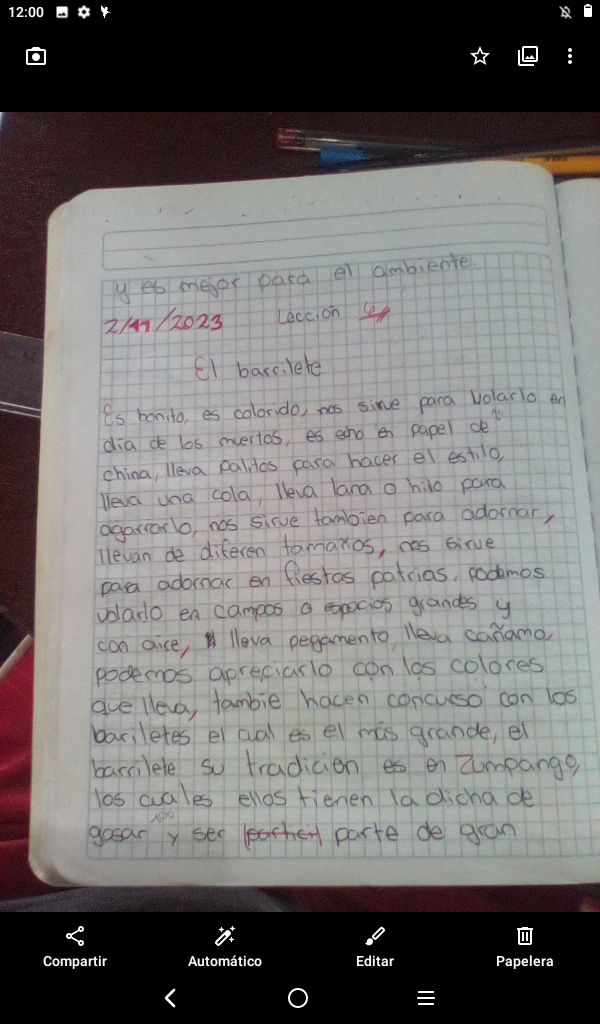 12:00
y es mejor para el ambiente.
2/11/2023 Lección
El barrilete
Es bonito, es colorido, nos sirve para volarlo en
día de los muertos, es echo en papel de
china, lleva palitos para hacer el estilo,
lleva una cola, lleva lana o hilo para
agarrarlo, nos sirve tambien para adornar,
llevan de diferen tamaños, nos sirve
para adornar en fiestas patrias, podemos
volarlo en campos o espacios grandes y
con aire, lleva pegamento, lleva cañamo,
podemos apreciarlo con los colores
que lleva, tambie hacen concurso con los
bariletes el cual es el más grande, el
barrilete su tradición es en Zumpango,
los cuales ellos tienen la dicha de
gosar y ser parte de gran
Compartir Automático Editar Papelera